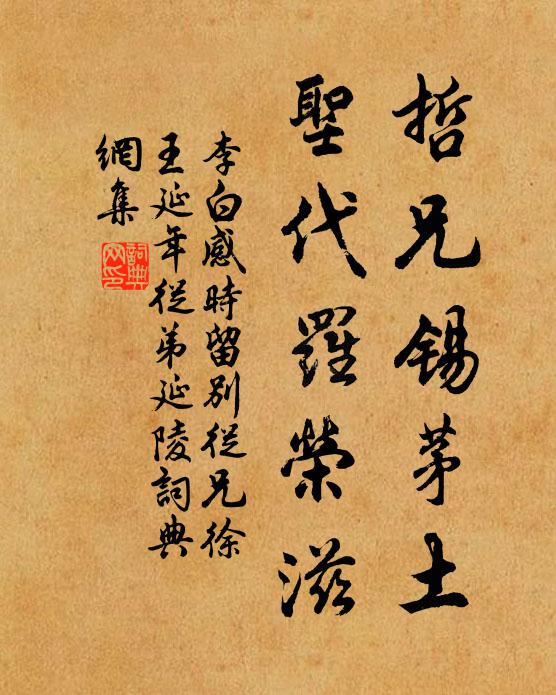 哲兄錫茅土
聖代羅榮滋
李白感時留別從兄徐
王延年從弟延陵詞典
網集
詞典
网印